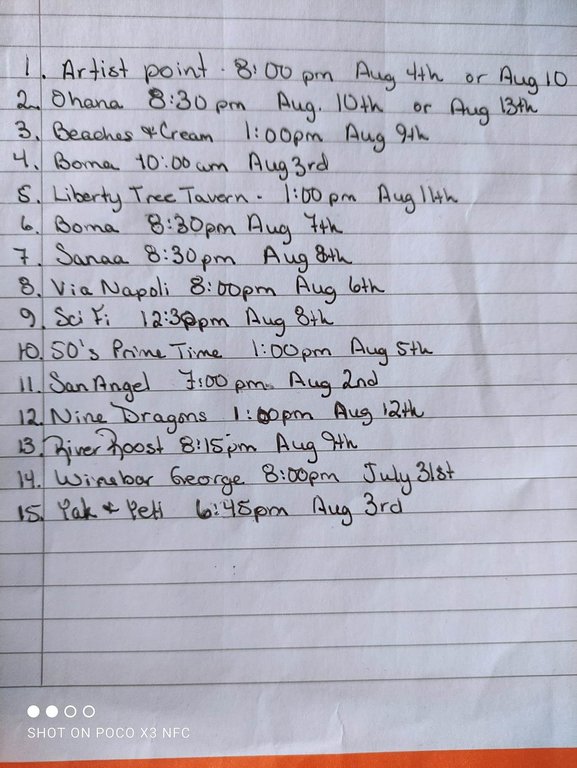 1. Artist point. 8:00 pm Aug 4th or Aug 10
2. Ohana 8:30 pm Aug. 10th or Aug 13th
3. Beaches & Cream 1:00pm Aug 9th
4. Boma 10:00 am Aug 3rd
5. Liberty Tree Tavern. 1:00 pm Aug 11th
6. Boma 8:30pm Aug 7th
7. Sanaa 8:30pm Aug 8th
8. Via Napoli 8:00pm Aug 6th
9. Sci Fi 12:30pm Aug 8th
10. 50's Prime Time 1:00pm Aug 5th
11. San Angel 7:00 pm. Aug 2nd
12. Nine Dragons 1:00pm Aug 12th
13. River Roost 8:15pm Aug 9th
14. Winebar George 8:00pm July 31st
15. Yak & Yeti 6:45pm Aug 3rd
SHOT ON POCO X3 NFC